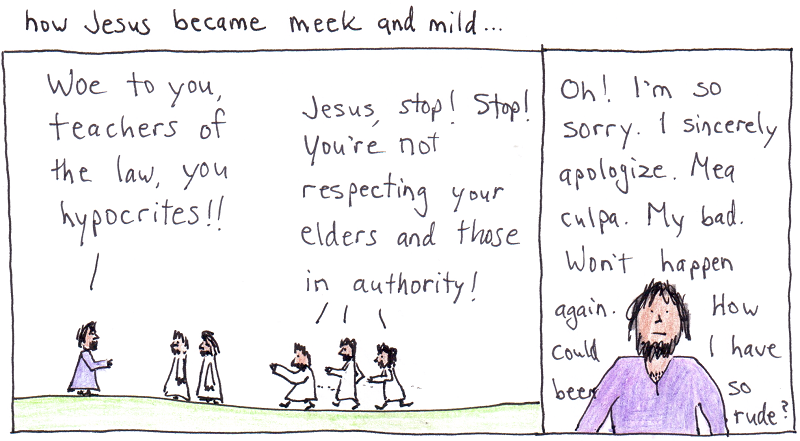 how Jesus became meek and mild...
Woe to you,
teachers of
the law, you
hypocrites!!
Jesus, stop! Stop!
You're not
respecting your
elders and those
in authority!
Oh! I'm so
sorry. I sincerely
apologize. Mea
culpa. My bad.
Won't happen
again. How
could I have
been so
rude?